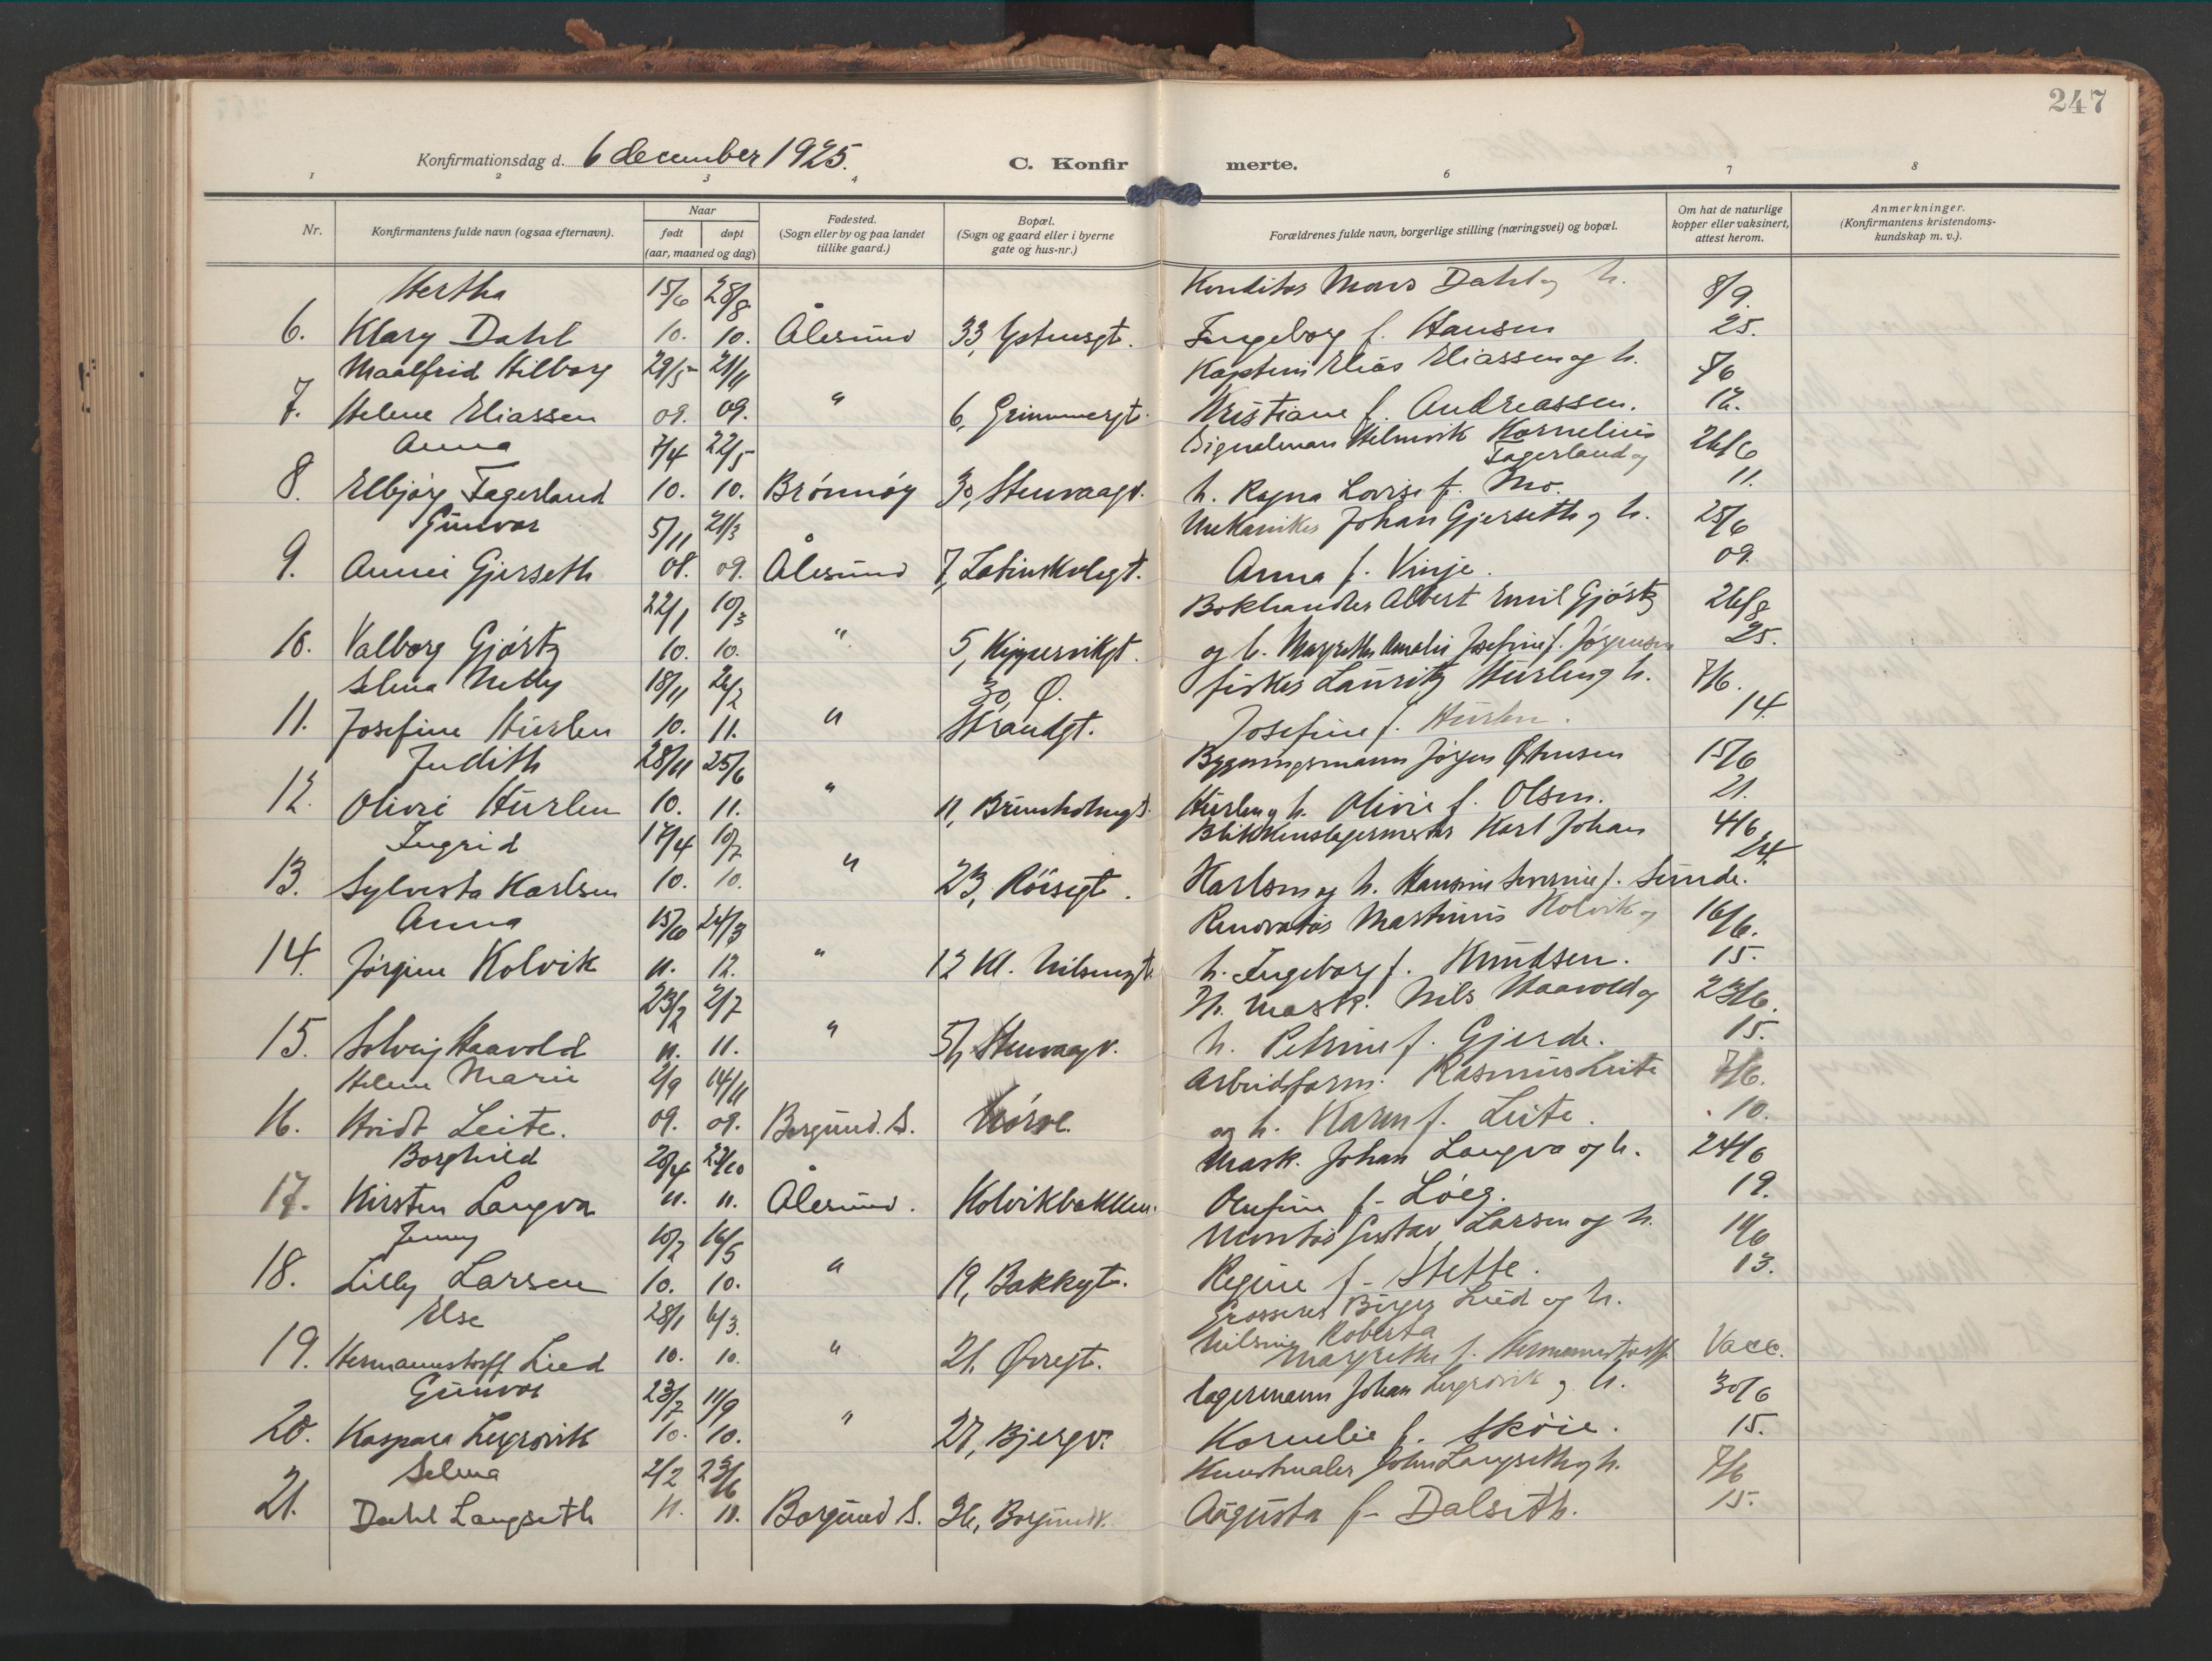 247
Konfirmationsdag d. 6 december 1925.
C. Konfir merte.
1 2 3 4 6 7 8
Nr.
Konfirmantens fulde navn (ogsaa efternavn).
Naar
født døpt
(aar, maaned og dag)
Fødested.
(Sogn eller by og paa landet
tillike gaard.)
Bopæl.
(Sogn og gaard eller i byerne
gate og hus-nr.)
Forældrenes fulde navn, borgerlige stilling (næringsvei) og bopæl.
Om hat de naturlige
kopper eller vaksinert,
attest herom.
Anmerkninger.
(Konfirmantens kristendoms-
kundskap m. v.).
Hertha 15/6 28/8 Konditor Mons Dahl og h. 8/9.
6. Klary Dahl 10. 10. Ålesund 33, Ystensgt. Ingeborg f. Hansen 25.
Maalfrid Hilborg 29/5 21/11 Kaptein Elias Eliassen og h. 7/6
7. Helene Eliassen 09. 09. " 6, Grimmergt. Kristiane f. Andreassen. 12.
Anna 7/4 22/5 Signalmann Helmvik Kornelius 26/6
Fagerland og
8. Elbjørg Fagerland 10. 10. Brønnøy 30, Stenvaagv. h. Ragna Lovise f. Mo. 11.
Gunvor 5/11 21/3 Mekaniker Johan Gjerseth og h. 25/6
9. Annie Gjerseth 08. 09. Ålesund 7, Latinskolegt. Anna f. Vinje. 09.
22/1 10/3 Bokhandler Albert Emil Gjørtz 26/8
10. Valborg Gjørtz 10. 10. " 5, Kipervikgt. og h. Margrethe Amalie Josefine f. Jørgensen 25.
Selma Nelly 18/11 26/2 30, Ø. fisker Lauritz Hurlen og h. 7/6.
11. Josefine Hurlen 10. 11. " Strandgt. Josefine f. Hurlen. 14.
Judith 28/11 25/6 Bygningsmann Jørgen Østensen 15/6
12. Olivie Hurlen 10. 11. " 11, Brunholmgt. Hurlen og h. Olivie f. Olsen. 21.
Ingrid 17/4 10/7 Blikkenslagermester Karl Johan 4/6
13. Sylvesta Karlsen 10. 10. " 23, Røisegt. Karlsen og h. Hansine Severine f. Sunde. 24.
Anna 15/10 24/3 Renovatør Martinus Kolvik og 16/6.
14. Jørgine Kolvik 11. 12. " 12 Kl. Nilsengt. h. Ingeborg f. Knudsen. 15.
23/2 2/7 Fh. mask. Nils Haavold og 23/6.
15. Solveig Haavold 11. 11. " 51, Stenvaagv. h. Petrine f. Gjerde. 15.
Helene Marie 2/9 14/11 Arbeidsform. Rasmus Leite 7/6.
16. Hvidt Leite. 09. 09. Borgund. S. Nørve. og h. Karen f. Leite. 10.
Borghild 20/4 22/10 Mask. Johan Langva og h. 24/6
17. Kirsten Langva 11. 11. Ålesund. Kolvikbakken. Olufine f. Løeg. 19.
Jenny 10/2 16/5 Montør Gustav Larsen og h. 14/6
18. Lilly Larsen 10. 10. " 19, Bakkegt. Regine f. Stette. 13.
Else 28/1 6/3. Grosserer Birger Lied og h.
Nilsine Roberta
19. Hermannstorff Lied 10. 10. " 21. Øvregt. Margrethe f. Hermannstorff Vacc.
Gunvor 23/7 11/9 Lagermann Johan Legrovik og h. 30/6
20. Kaspara Legrovik 10. 10. " 27, Bjergv. Kornelie f. Skøie. 15.
Selma 2/2 23/6 Kunstmaler John Langseth og h. 7/6
21. Dahl Langseth 11. 11. Borgund S. 36, Borgundv. Augusta f. Dalseth. 15.